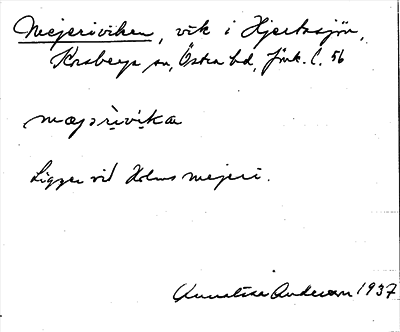 Mejeriviken, vik i Hjertasjön,
Korsberga sn, Östra hd, Jönk. l. 56
mæjərìvi̬ka
Ligger vid Holms mejeri.
Annalisa Andersson 1937